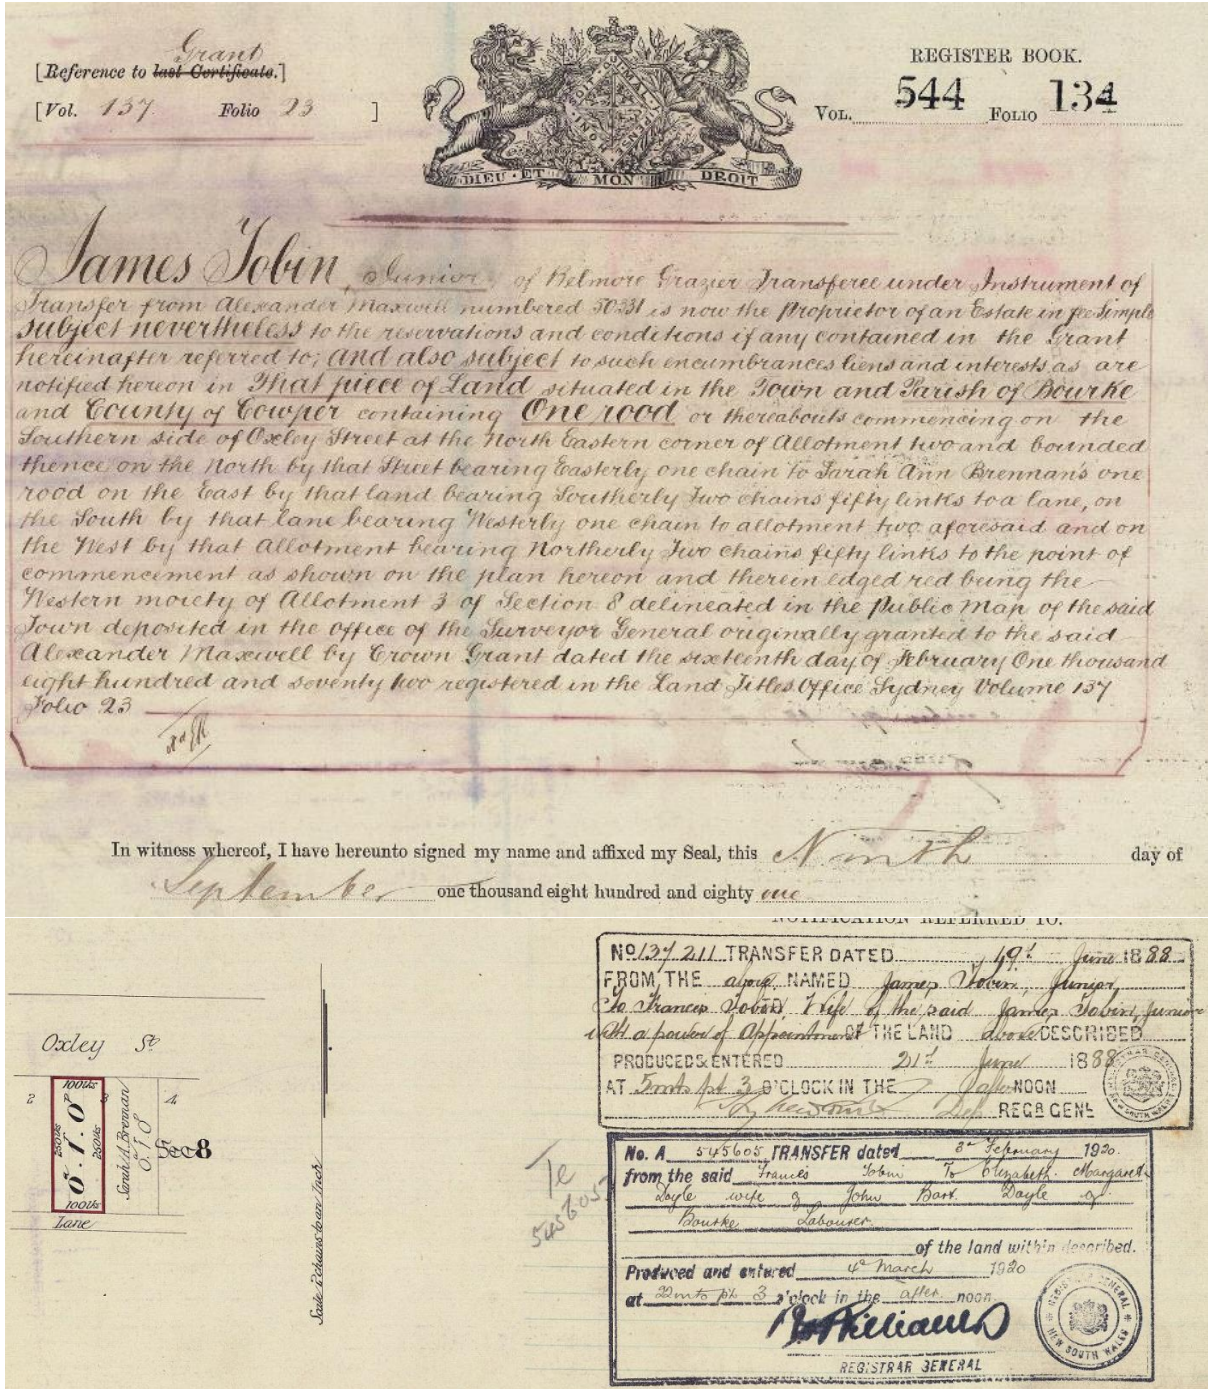 Grant
[Reference to last Certificate.]
[Vol. 137 Folio 23 ]
DIEU ET MON DROIT
REGISTER BOOK.
VOL. 544 FOLIO 134
James Tobin, Junior, of Belmore Grazier Transferee under Instrument of
Transfer from Alexander Maxwell numbered 50331 is now the Proprietor of an Estate in fee simple
subject nevertheless to the reservations and conditions if any contained in the Grant
hereinafter referred to; and also subject to such encumbrances liens and interests as are
notified hereon in That piece of Land situated in the Town and Parish of Bourke
and County of Cowper containing One rood or thereabouts commencing on the
Southern side of Oxley Street at the North Eastern corner of Allotment two and bounded
thence on the North by that Street bearing Easterly one chain to Sarah Ann Brennan's one
rood on the East by that land bearing Southerly Two chains fifty links to a lane, on
the South by that lane bearing Westerly one chain to allotment two aforesaid and on
the West by that Allotment bearing Northerly Two chains fifty links to the point of
commencement as shown on the plan hereon and therein edged red being the
Western moiety of Allotment 3 of Section 8 delineated in the Public Map of the said
Town deposited in the office of the Surveyor General originally granted to the said
Alexander Maxwell by Crown Grant dated the sixteenth day of February One thousand
eight hundred and seventy two registered in the Land Titles Office Sydney Volume 137
Folio 23
In witness whereof, I have hereunto signed my name and affixed my Seal, this Ninth day of
September one thousand eight hundred and eighty one
NOTIFICATION REFERRED TO.
No 137211 TRANSFER DATED 19th June 1888
FROM THE above NAMED James Tobin, Junior,
to Frances Tobin Wife of the said James Tobin, Junior
with a power of Appointment OF THE LAND above DESCRIBED
PRODUCED & ENTERED 21st June 1888
AT 5 mts pt 3 O'CLOCK IN THE afterNOON
Dep REGR GENL
Oxley St
100lks
2
3
4
250lks
0.1.0
250lks
Sarah A. Brennan
0.1.0
Sec 8
100lks
Lane
Scale 2 Chains to an Inch
Te
545605
No. A 545605 TRANSFER dated 3rd February 1920.
from the said Frances Tobin To Elizabeth Margareth
Doyle wife of John Bart. Doyle of
Bourke Labourer
of the land within described.
Produced and entered 4th March 1920
at 22 mts pt 3 o'clock in the after noon.
Williams
REGISTRAR GENERAL
REGISTRAR GENERAL NEW SOUTH WALES